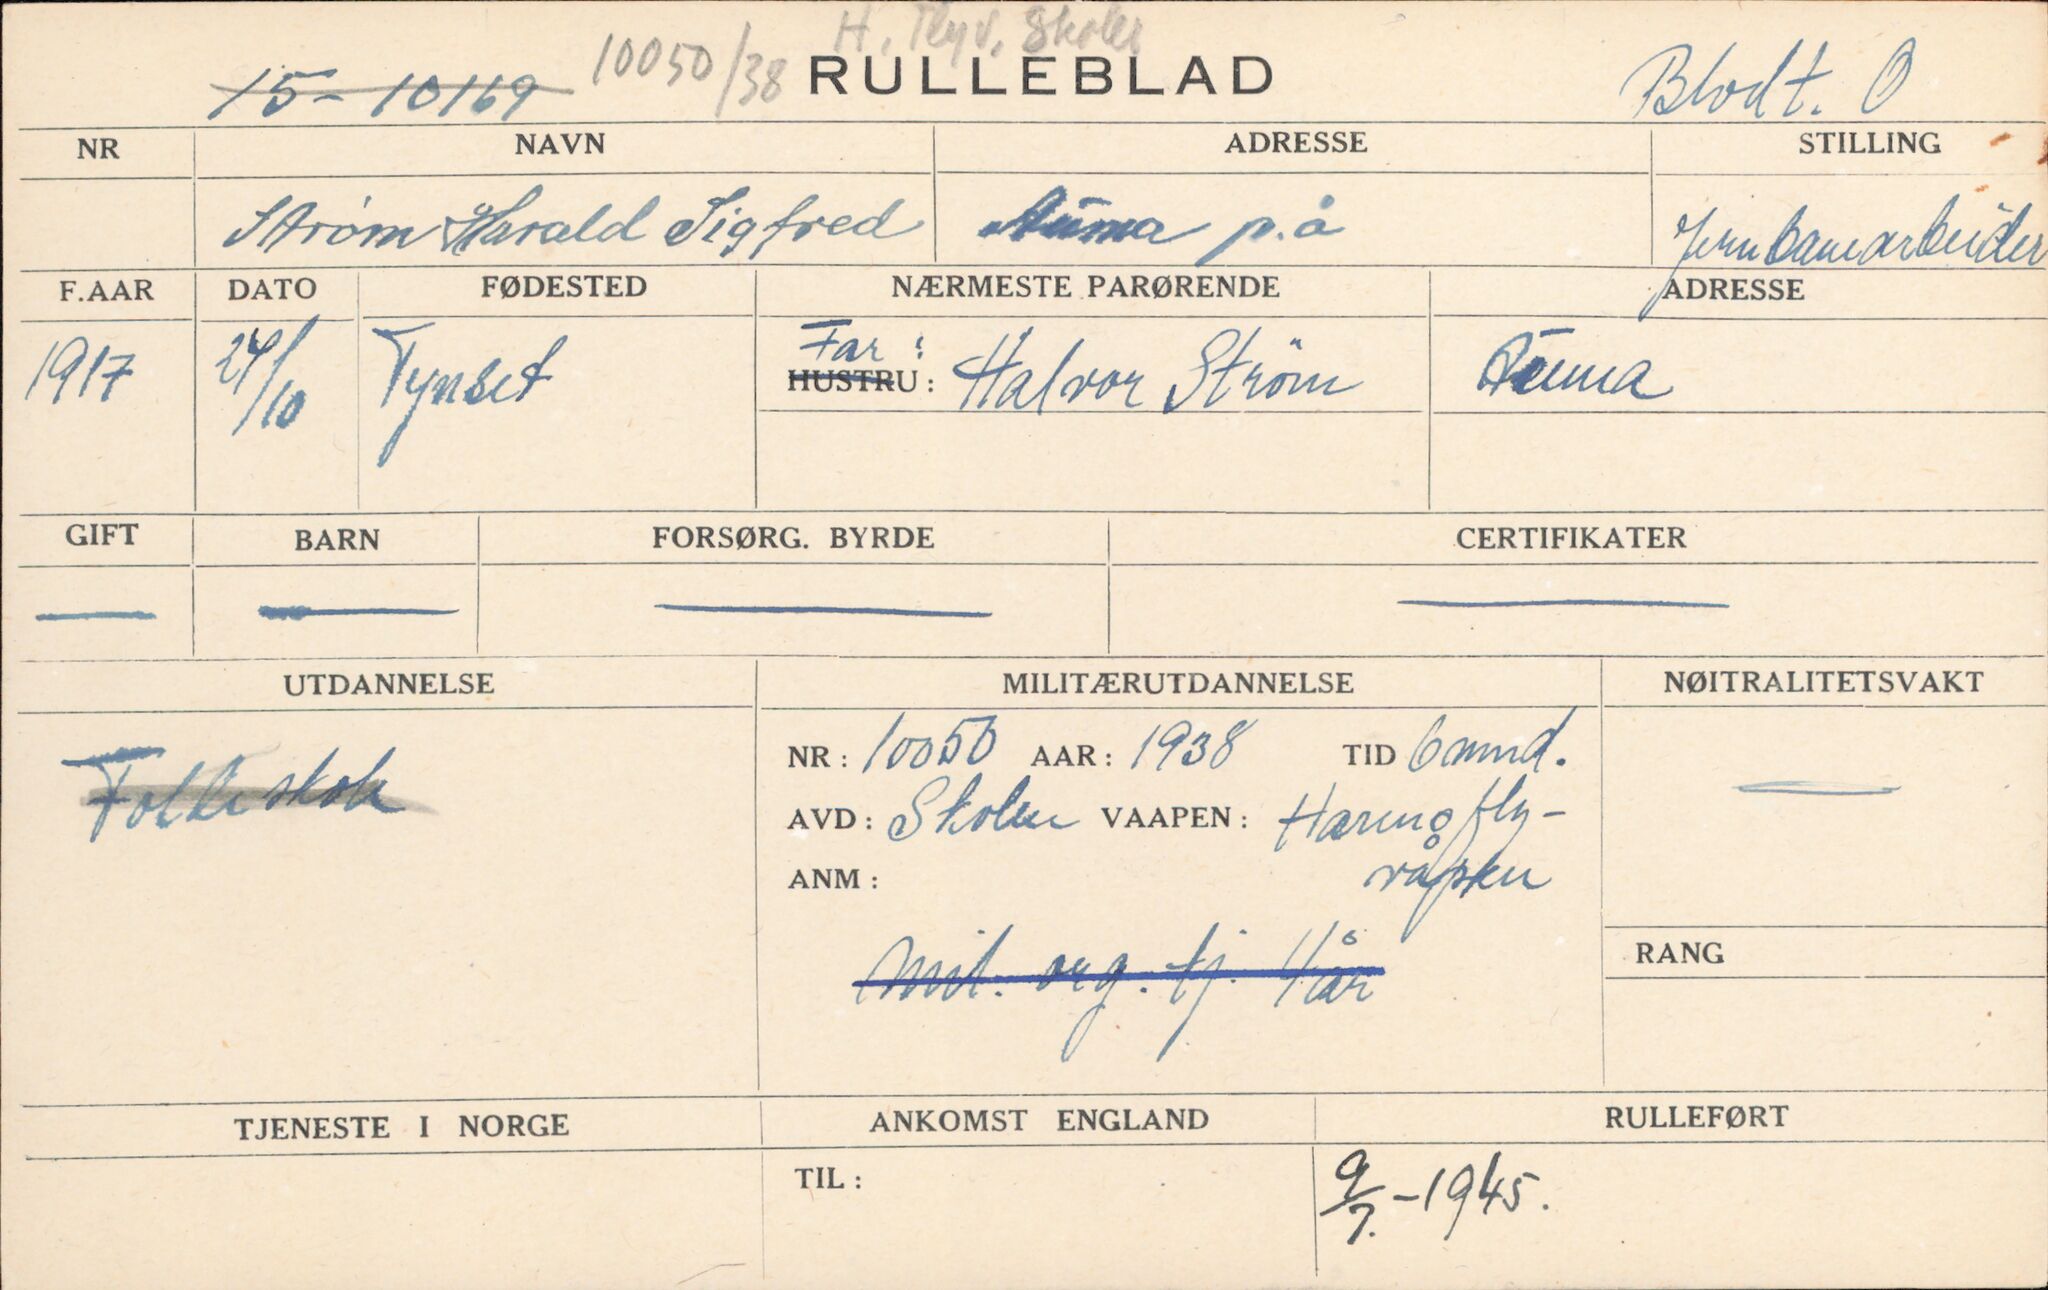 H. Flyv. Skoles
15-10169 10050/38 RULLEBLAD Blodt. O
NR NAVN ADRESSE STILLING
Strøm Harald Sigfred Auma p.å Jernbanearbeider
F.AAR DATO FØDESTED NÆRMESTE PARØRENDE ADRESSE
1917 24/10 Tynset Far: Halvor Strøm Auma
HUSTRU:
GIFT BARN FORSØRG. BYRDE CERTIFIKATER
UTDANNELSE MILITÆRUTDANNELSE NØITRALITETSVAKT
Folkeskole NR: 10050 AAR: 1938 TID 6 mnd.
AVD: Skolen VAAPEN: Hærens fly-
ANM: våpen
RANG
Mil. org. tj. 4 år
TJENESTE I NORGE ANKOMST ENGLAND RULLEFØRT
TIL: 9/7.-1945.